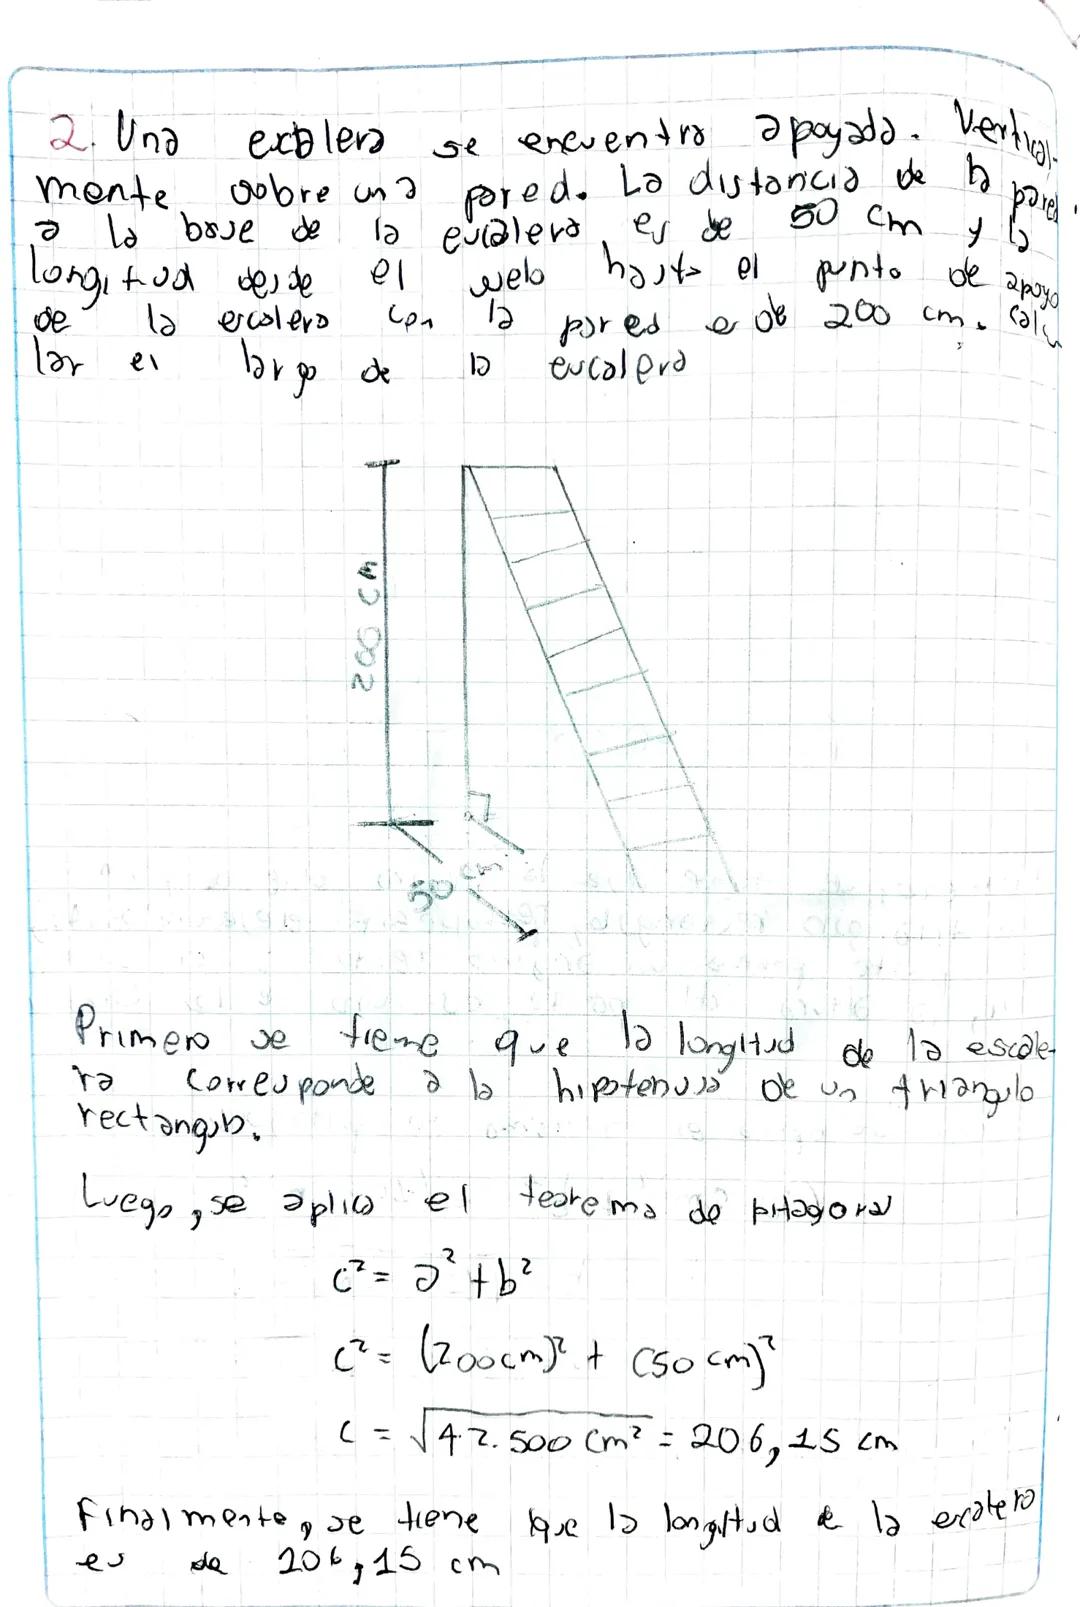 2. Una escalera se encuentra apoyada. Vertical-
mente sobre una pared. La distancia de la pared
a la base de la escalera es de 50 cm y la
longitud desde el suelo hasta el punto de apoyo
de la escalera con la pared es de 200 cm. calcu
lar el largo de la escalera
200 cm
50 cm
Primero se tiene que la longitud de la escale-
ra corresponde a la hipotenusa de un triangulo
rectangulo.
Luego, se aplica el teorema de pitagoras
c² = a² + b²
c² = (200cm)² + (50 cm)²
c = √42.500 cm² = 206,15 cm
Finalmente, se tiene que la longitud de la escalera
es de 206,15 cm